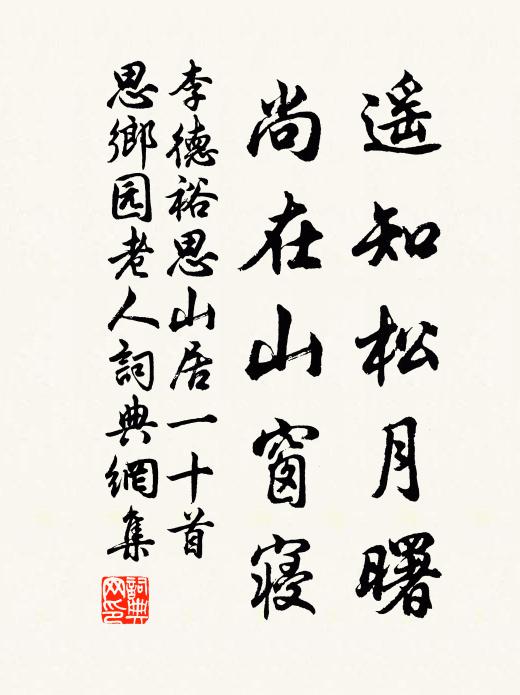 遥知松月曙
尚在山窗寢
李德裕思山居一十首
思鄉园老人詞典網集
詞典網印